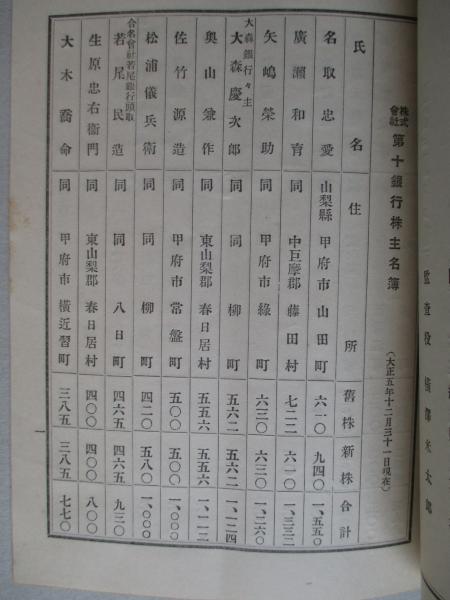 監査役
株式會社 第十銀行株主名簿 (大正五年十二月三十一日現在)
氏名 住所 舊株 新株 合計
名取忠愛 山梨縣 甲府市山田町 六一〇 九四〇 一、五五〇
廣瀨和育 同 中巨摩郡藤田村 七二二 六一〇 一、三三二
矢嶋榮助 同 甲府市綠町 六三〇 六三〇 一、二六〇
大森銀行々主 大森慶次郎 同 同 柳町 五六二 五六二 一、一二四
奥山兼作 同 東山梨郡春日居村 五五六 五五六 一、一一二
佐竹源造 同 甲府市常盤町 五〇〇 五〇〇 一、〇〇〇
松浦儀兵衛 同 同 柳町 四二〇 五八〇 一、〇〇〇
合名會社若尾銀行頭取 若尾民造 同 同 八日町 四六五 四六五 九三〇
生原忠右衞門 同 東山梨郡春日居村 四〇〇 四〇〇 八〇〇
大木喬命 同 甲府市橫近習町 三八五 三八五 七七〇
一